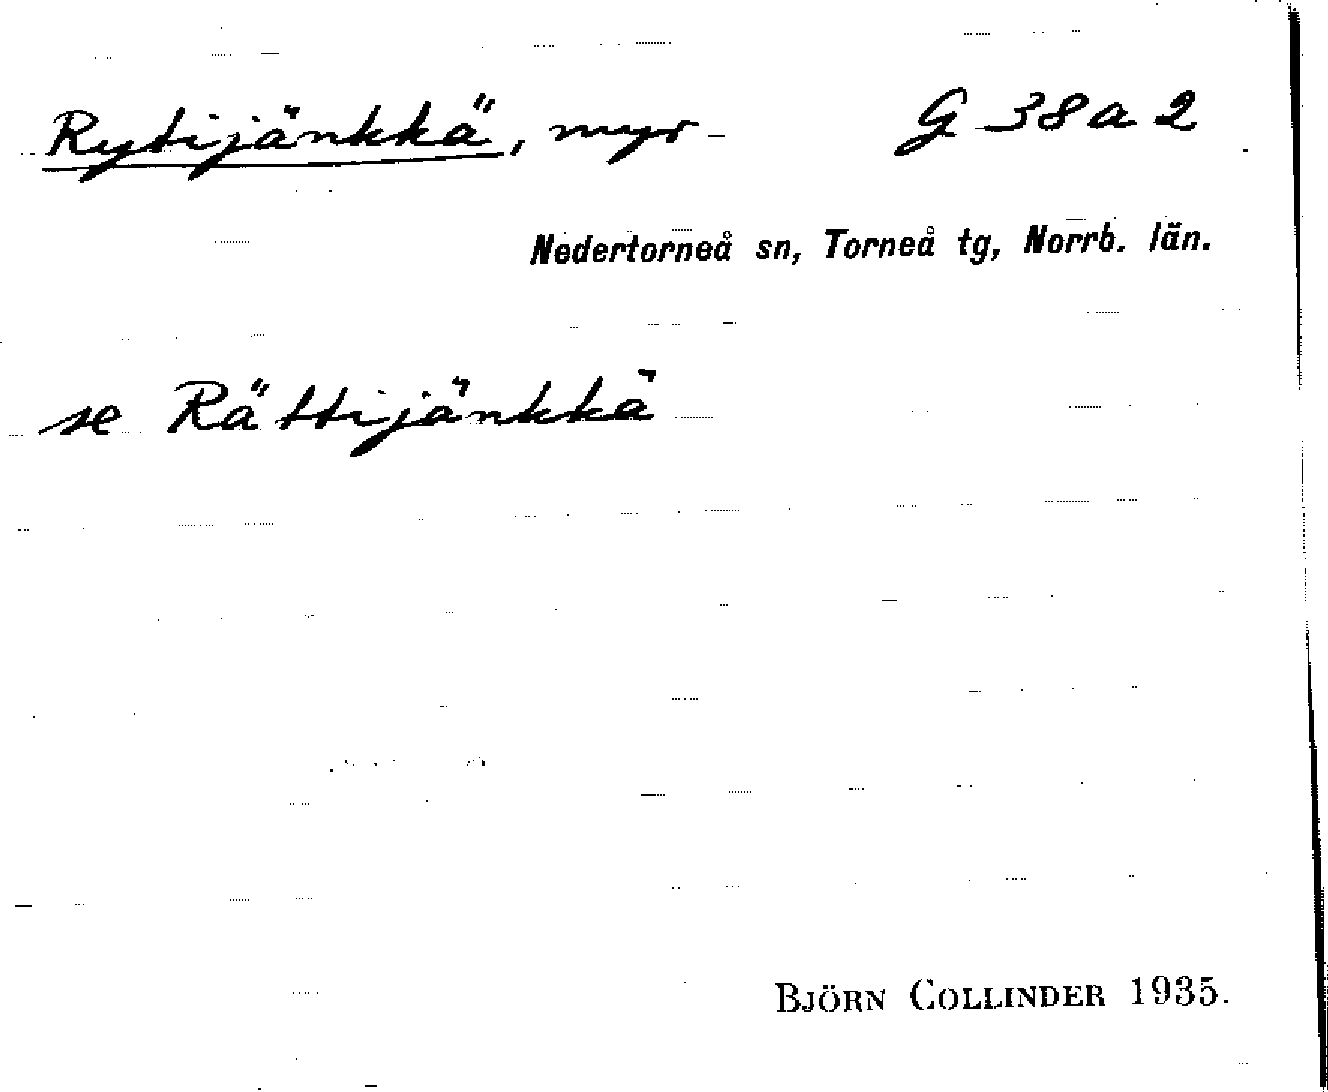 Rytijänkkä, myr G 38 a 2
Nedertorneå sn, Torneå tg, Norrb. län.
se Rättijänkkä
BJÖRN COLLINDER 1935.